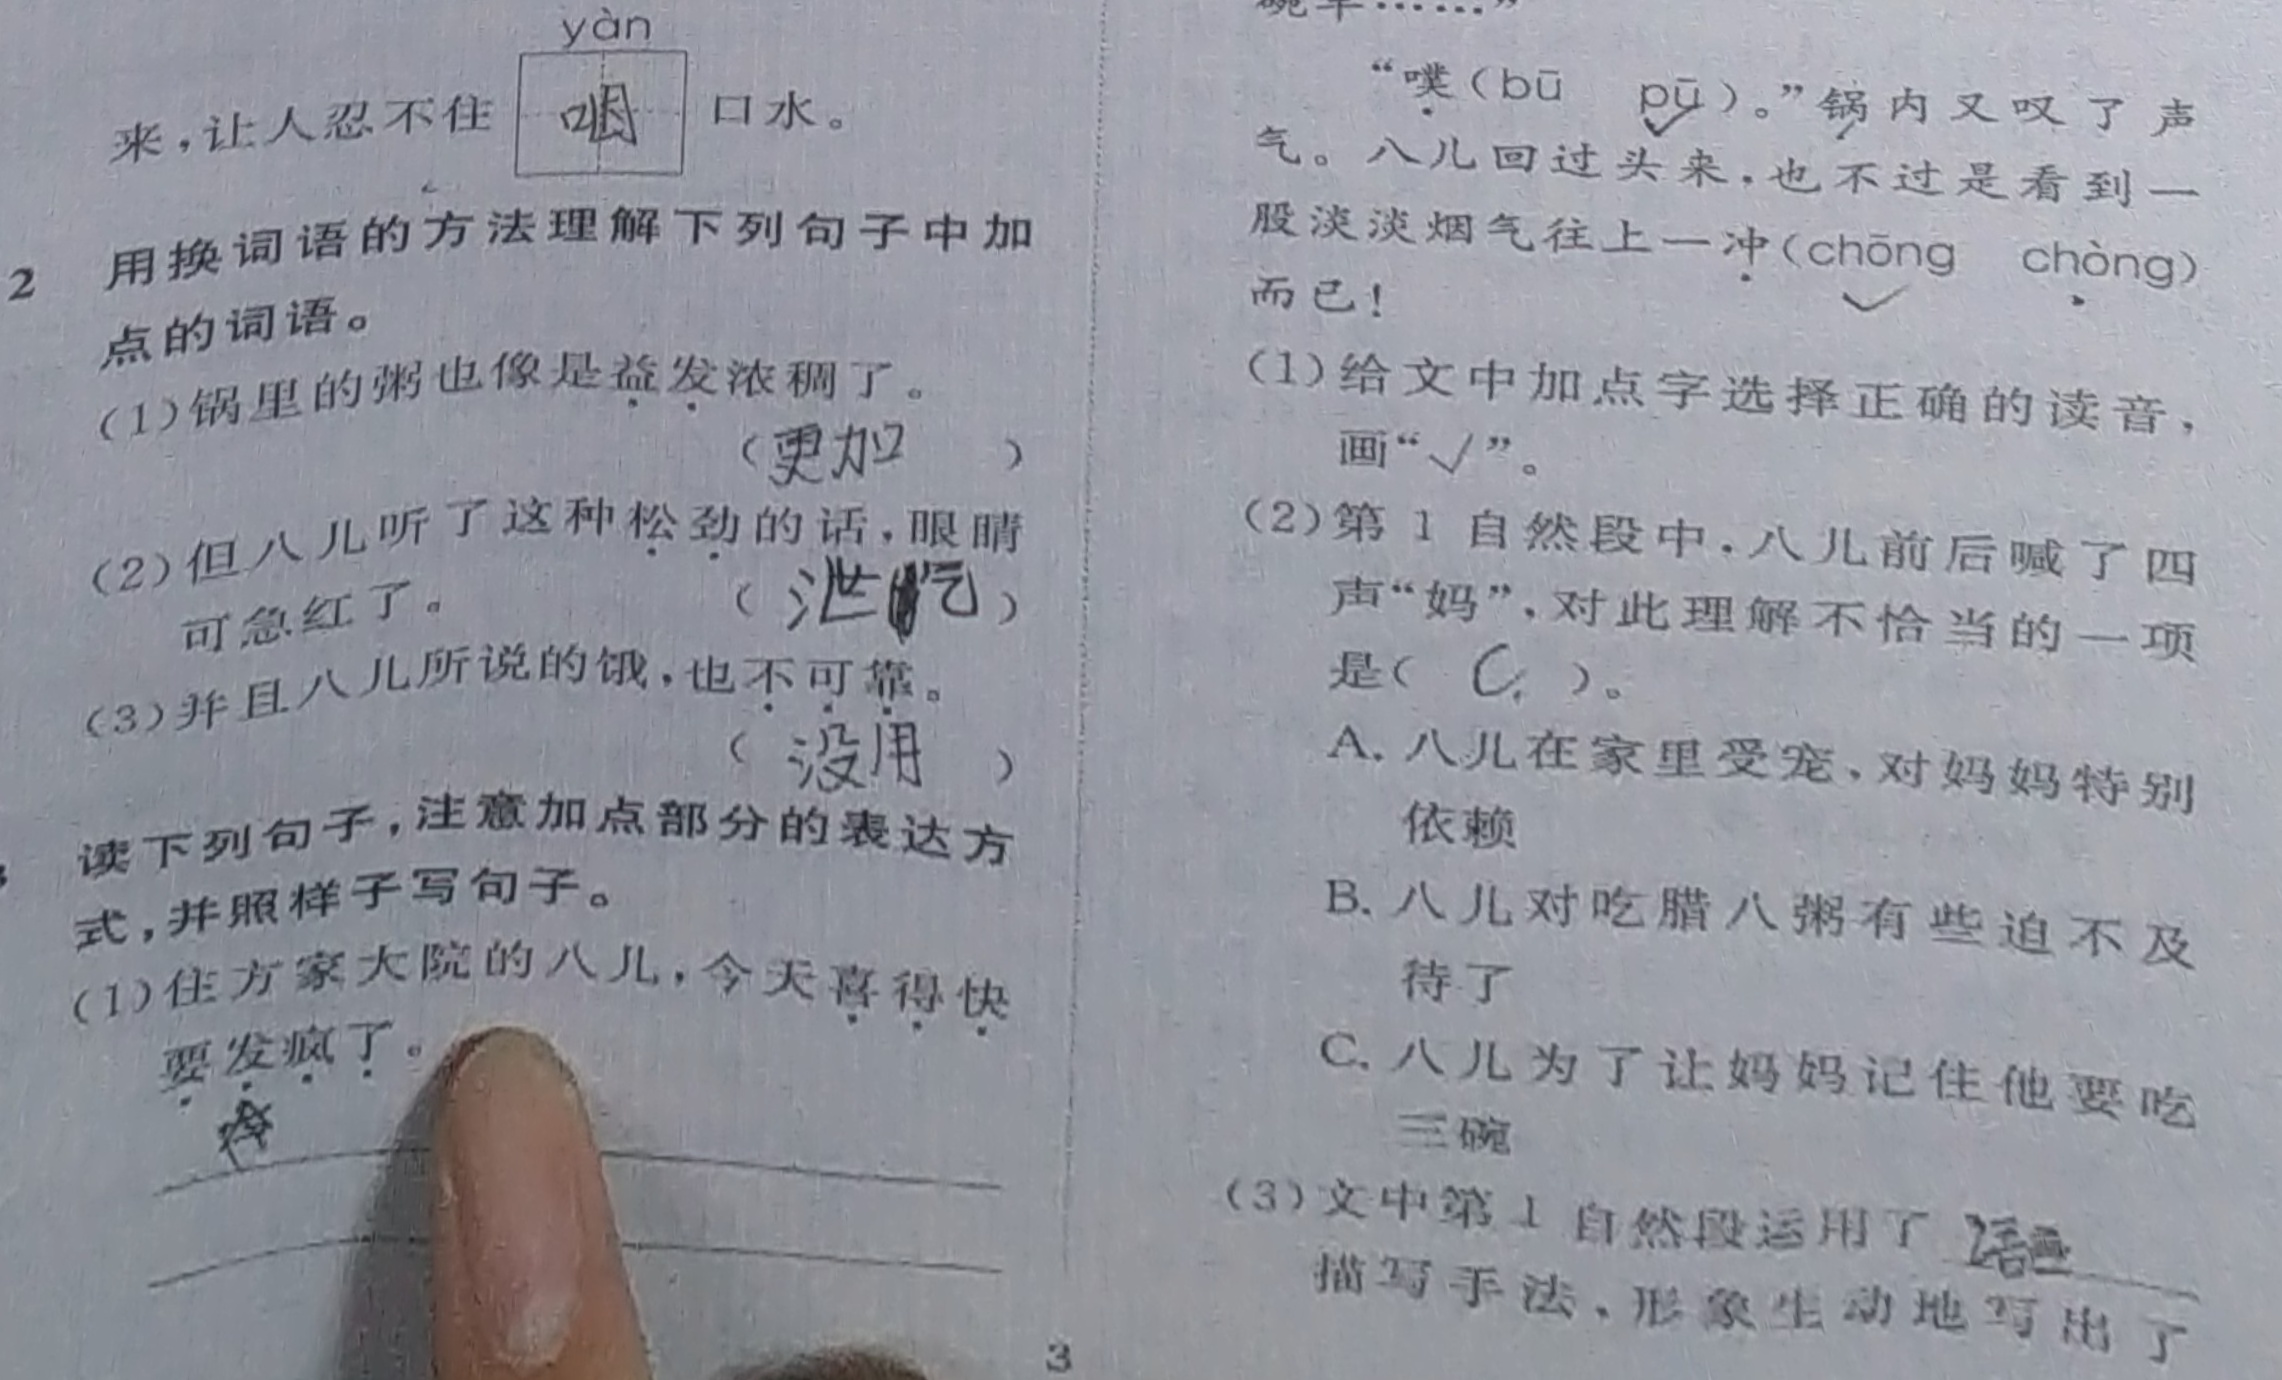 yàn
来，让人忍不住 咽 口水。
2 用换词语的方法理解下列句子中加
点的词语。
(1)锅里的粥也像是益发浓稠了。
（更加）
(2)但八儿听了这种松劲的话，眼睛
可急红了。 （泄气）
(3)并且八儿所说的饿，也不可靠。
（没用）
读下列句子，注意加点部分的表达方
式，并照样子写句子。
(1)住方家大院的八儿，今天喜得快
要发疯了。
碗半……”
“噗(bū pū)。”锅内又叹了声
气。八儿回过头来，也不过是看到一
股淡淡烟气往上一冲(chōng chòng)
而已！
(1)给文中加点字选择正确的读音，
画“√”。
(2)第1自然段中，八儿前后喊了四
声“妈”，对此理解不恰当的一项
是( C )。
A. 八儿在家里受宠，对妈妈特别
依赖
B. 八儿对吃腊八粥有些迫不及
待了
C. 八儿为了让妈妈记住他要吃
三碗
(3)文中第1自然段运用了 语
描写手法，形象生动地写出了
3